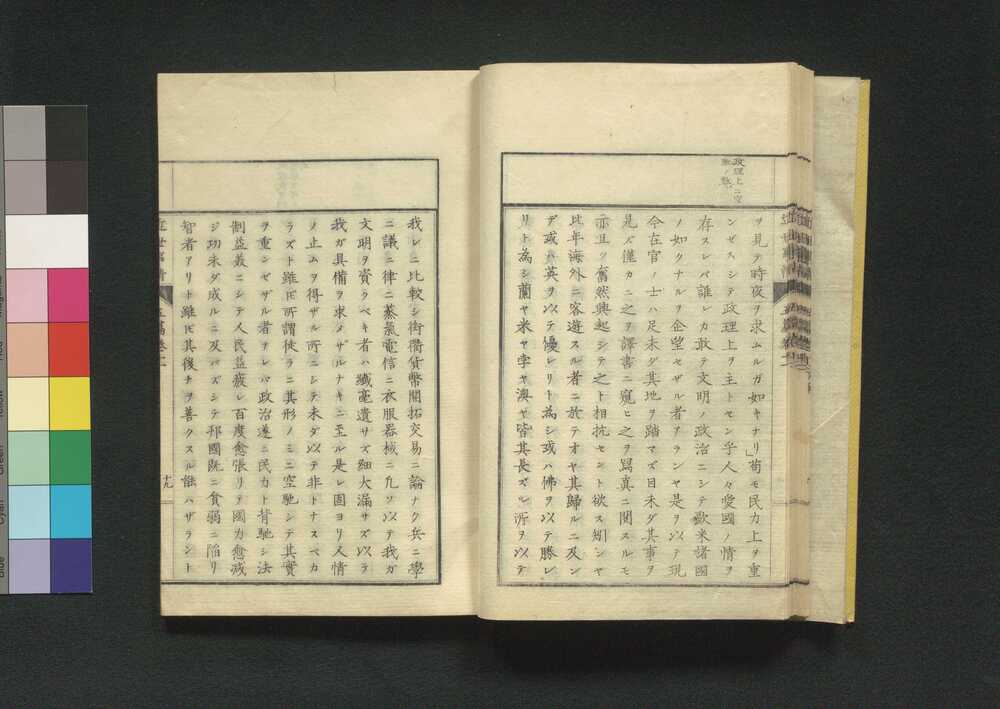 ヲ見テ時夜ヲ求ムルガ如キナリ」苟モ民力上ヲ重
ンゼズシテ政理上ヲ主トセン乎人々愛國ノ情ヲ
存スレバ誰レカ敢テ文明ノ政治ニシテ歐米諸國
ノ如クナルヲ企望セザル者アランヤ是ヲ以テ現
今在官ノ士ハ足未ダ其地ヲ踏マズ目未ダ其事ヲ
見ズ僅カニ之ヲ譯書ニ窺ヒ之ヲ寫真ニ閲スルモ
亦且ツ奮然興起シテ之ト相抗セント欲ス矧ンヤ
比年海外ニ客遊スル者ニ於テオヤ其歸ルニ及ン
デ或ハ英ヲ以テ優レリト為シ或ハ佛ヲ以テ勝レ
リト為シ蘭ヤ米ヤ孛ヤ澳ヤ皆其長ズル所ヲ以テ
我レニ比較シ街衢貨幣開拓交易ニ論ナク兵ニ學
ニ議ニ律ニ蒸氣電信ニ衣服器械ニ凡ソ以テ我ガ
文明ヲ資ラベキ者ハ纎毫遺サズ細大漏サズ以ラ
我ガ具備ヲ求メザルナキニ至ル是レ固ヨリ人情
ノ止ムヲ得ザル所ニシテ未ダ以テ非トナスベカ
ラズト雖𪜈所謂徒ラニ其形ノミニ空馳シテ其實
ヲ重ンゼザル者ヲレバ政治遂ニ民力ト背馳シ法
制益美ニシテ人民益疲レ百度愈張リテ國力愈減
ジ功未ダ成ルニ及バズシテ邦國既ニ貧弱ニ陷リ
智者アリト雖𪜈其後チヲ善クスル能ハザラント
十九